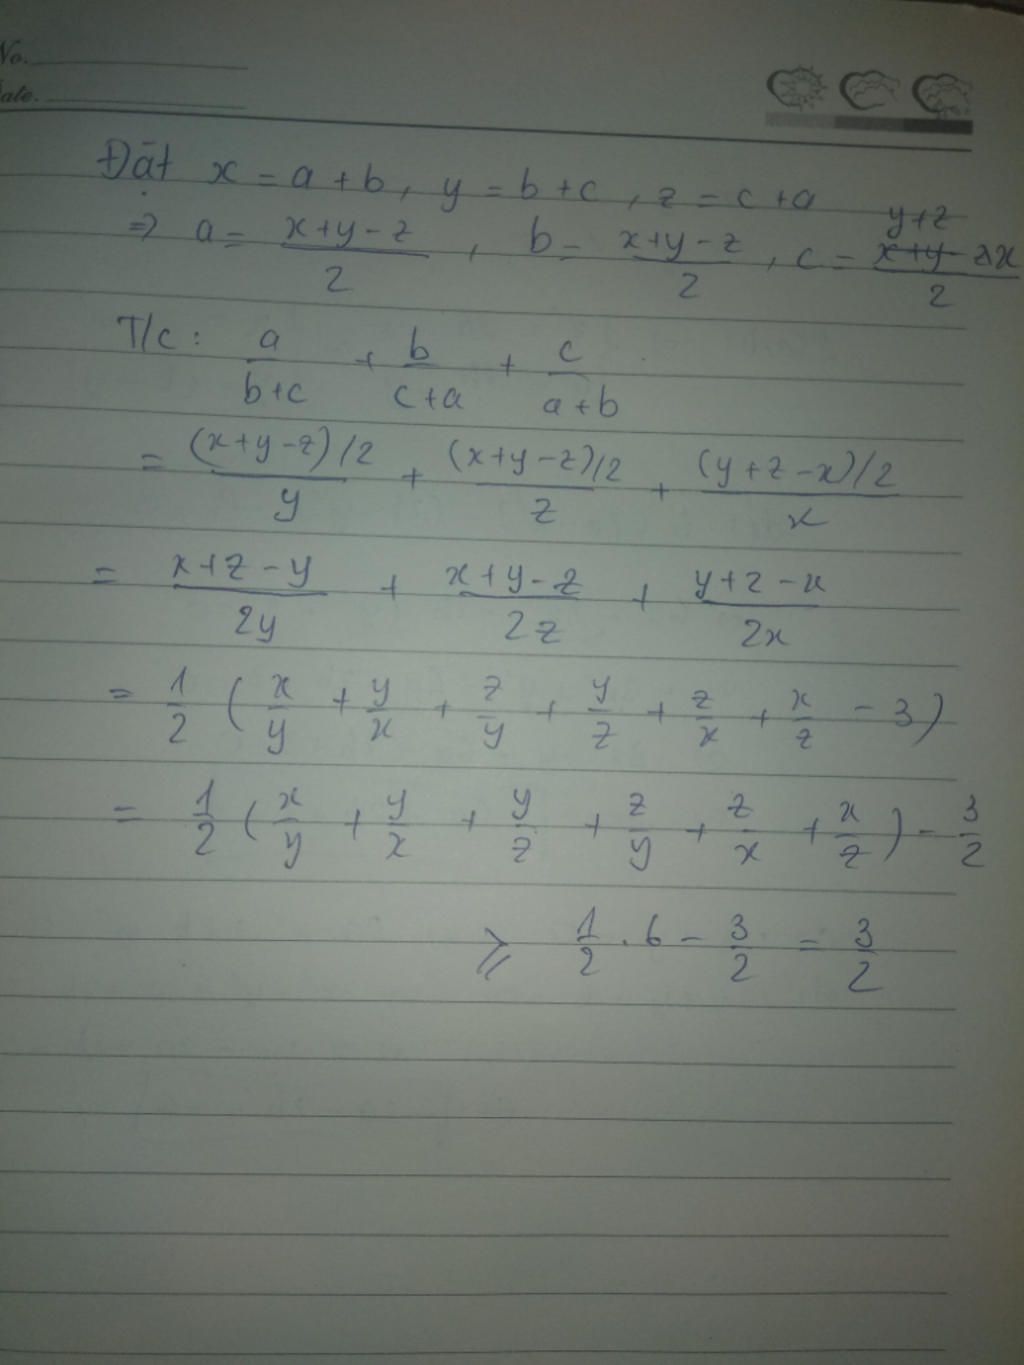 No.
Date.
Đặt x = a + b, y = b + c, z = c + a
⇒ a = (x+y-z)/2, b = (x+y-z)/2, c = (y+z-x)/2
T/c: a/(b+c) + b/(c+a) + c/(a+b)
= ((x+y-z)/2)/y + ((x+y-z)/2)/z + ((y+z-x)/2)/x
= (x+z-y)/2y + (x+y-z)/2z + (y+z-x)/2x
= 1/2 (x/y + y/x + z/y + y/z + z/x + x/z - 3)
= 1/2 (x/y + y/x + y/z + z/y + z/x + x/z) - 3/2
⩾ 1/2 . 6 - 3/2 = 3/2